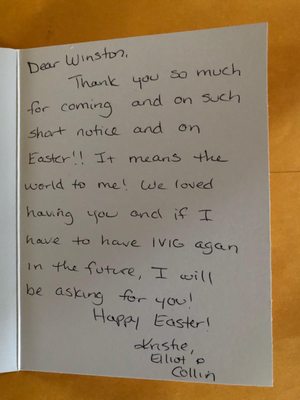 Dear Winston,
Thank you so much
for coming and on such
short notice and on
Easter!! It means the
world to me! We loved
having you and if I
have to have IVIG agan
in the future, I will
be asking for you!
Happy Easter!
Kristie,
Elliot &
Collin